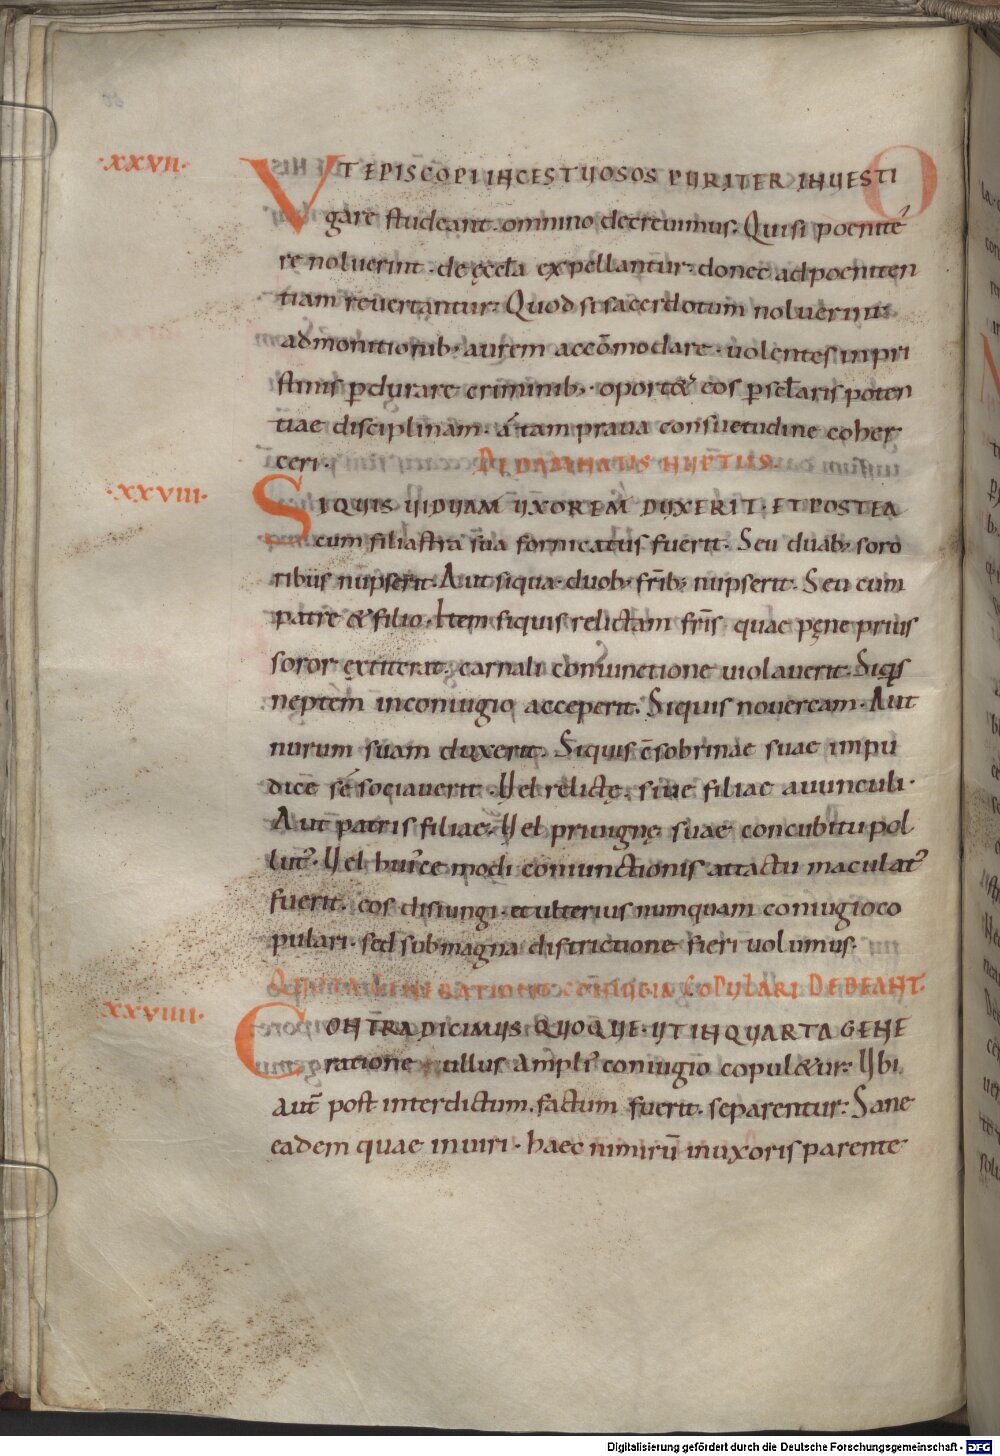 ·XXVII·
VT EPISCOPI INCESTUOSOS PURITER INUESTI
gare studeant. omnino decreuimus; Qui si poenite
re noluerint. de ęccla expellantur; donec ad poeniten
tiam reuertantur; Quod si sacerdotum noluerint
admonitionib; aurem accōmodare. uolentes in pri
stinis pdurare criminib;. oportet eos p sclaris poten
tiae disciplinam. á tam praua consuetudine coher
ceri.
DE DAMNATIS NUPTIIS.
·XXVIII·
SI QUIS UIDUAM UXOREM DUXERIT. ET POSTEA
cum filiastra sua fornicatus fuerit. Seu duab; soro
ribus nupserit. Aut siqua. duob; frib; nupserit. Seu cum
patre & filio. Item siquis relictam fris quae pęne prius
soror extiterit. carnali coniunctione uiolauerit. Siqs
neptem in coniugio acceperit. Siquis nouercam. Aut
nurum suam duxerit. Siquis c̄sobrinae suae impu
dice se sociauerit. Uel relictę. siue filiae auunculi.
Aut patris filiae. Uel priuignę suae concubitu pol
lut'. Uel hui'ce modi coniunctionis attactu maculat'
fuerit. eos disiungi. et ulterius numquam coniugio co
pulari. sed sub magna districtione fieri uolumus;
QUOTA GENERATIONE CONIUGIA COPULARI DEBEANT.
·XXVIIII·
CONTRADICIMUS QUOQUE. UT IN QUARTA GENE
ratione nullus ampli' coniugio copul&ur; Ubi
aut̄ post interdictum. factum fuerit. separentur; Sane
eadem quae in uiri. haec nimirū in uxoris parente
Digitalisierung gefördert durch die Deutsche Forschungsgemeinschaft - DFG